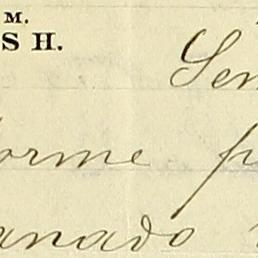 M.
S H.
Sen
orme p
anado